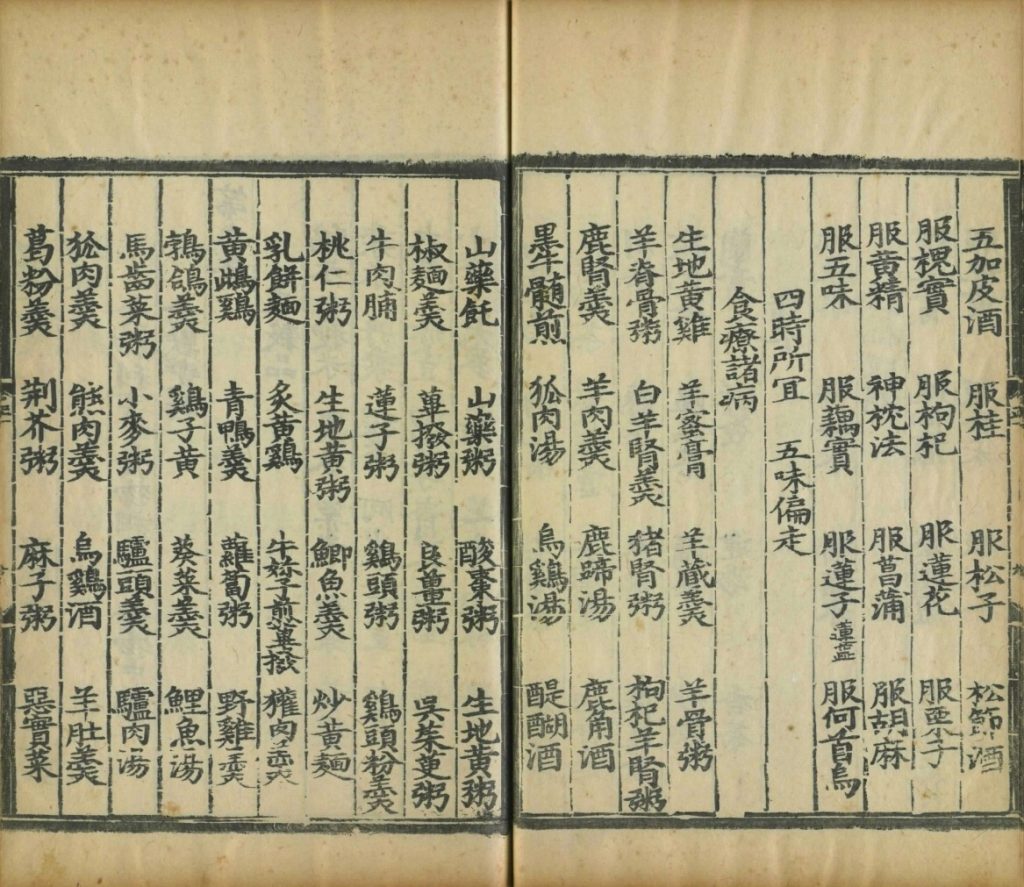 五加皮酒 服桂 服松子 松節酒
服槐實 服枸杞 服蓮花 服栗子
服黃精 神枕法 服菖蒲 服胡麻
服五味 服藕實 服蓮子蓮蕋 服何首烏
四時所宜 五味偏走
食療諸病
生地黃雞 羊蜜膏 羊藏羹 羊骨粥
羊脊骨粥 白羊腎羹 猪腎粥 枸杞羊腎粥
鹿腎羹 羊肉羹 鹿蹄湯 鹿角酒
黑牛髓煎 狐肉湯 烏鷄湯 醍醐酒
山藥飥 山藥粥 酸棗粥 生地黃粥
椒麵羹 蓽撥粥 良薑粥 吳茱萸粥
牛肉脯 蓮子粥 鷄頭粥 鷄頭粉羹
桃仁粥 生地黃粥 鯽魚羹 炒黃麵
乳餅麵 炙黃鷄 牛妳子煎蓽撥 獾肉羹
黃雌鷄 青鴨羹 蘿蔔粥 野雞羹
鵓鴿羹 鷄子黃 葵菜羹 鯉魚湯
馬齒菜粥 小麥粥 驢頭羹 驢肉湯
狐肉羹 熊肉羹 烏鷄酒 羊肚羹
葛粉羹 荆芥粥 麻子粥 惡實菜